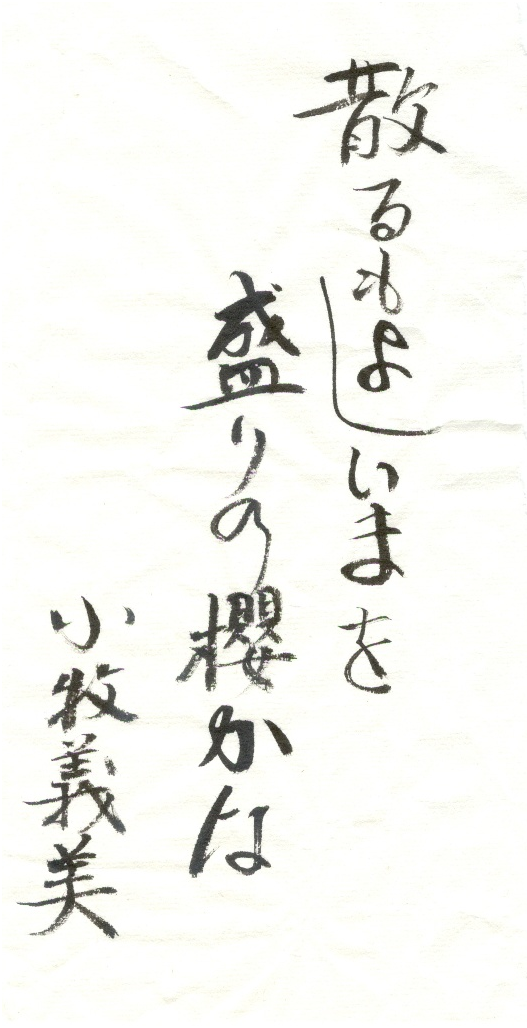 散るもよしいまを
盛りの櫻かな
小牧義美